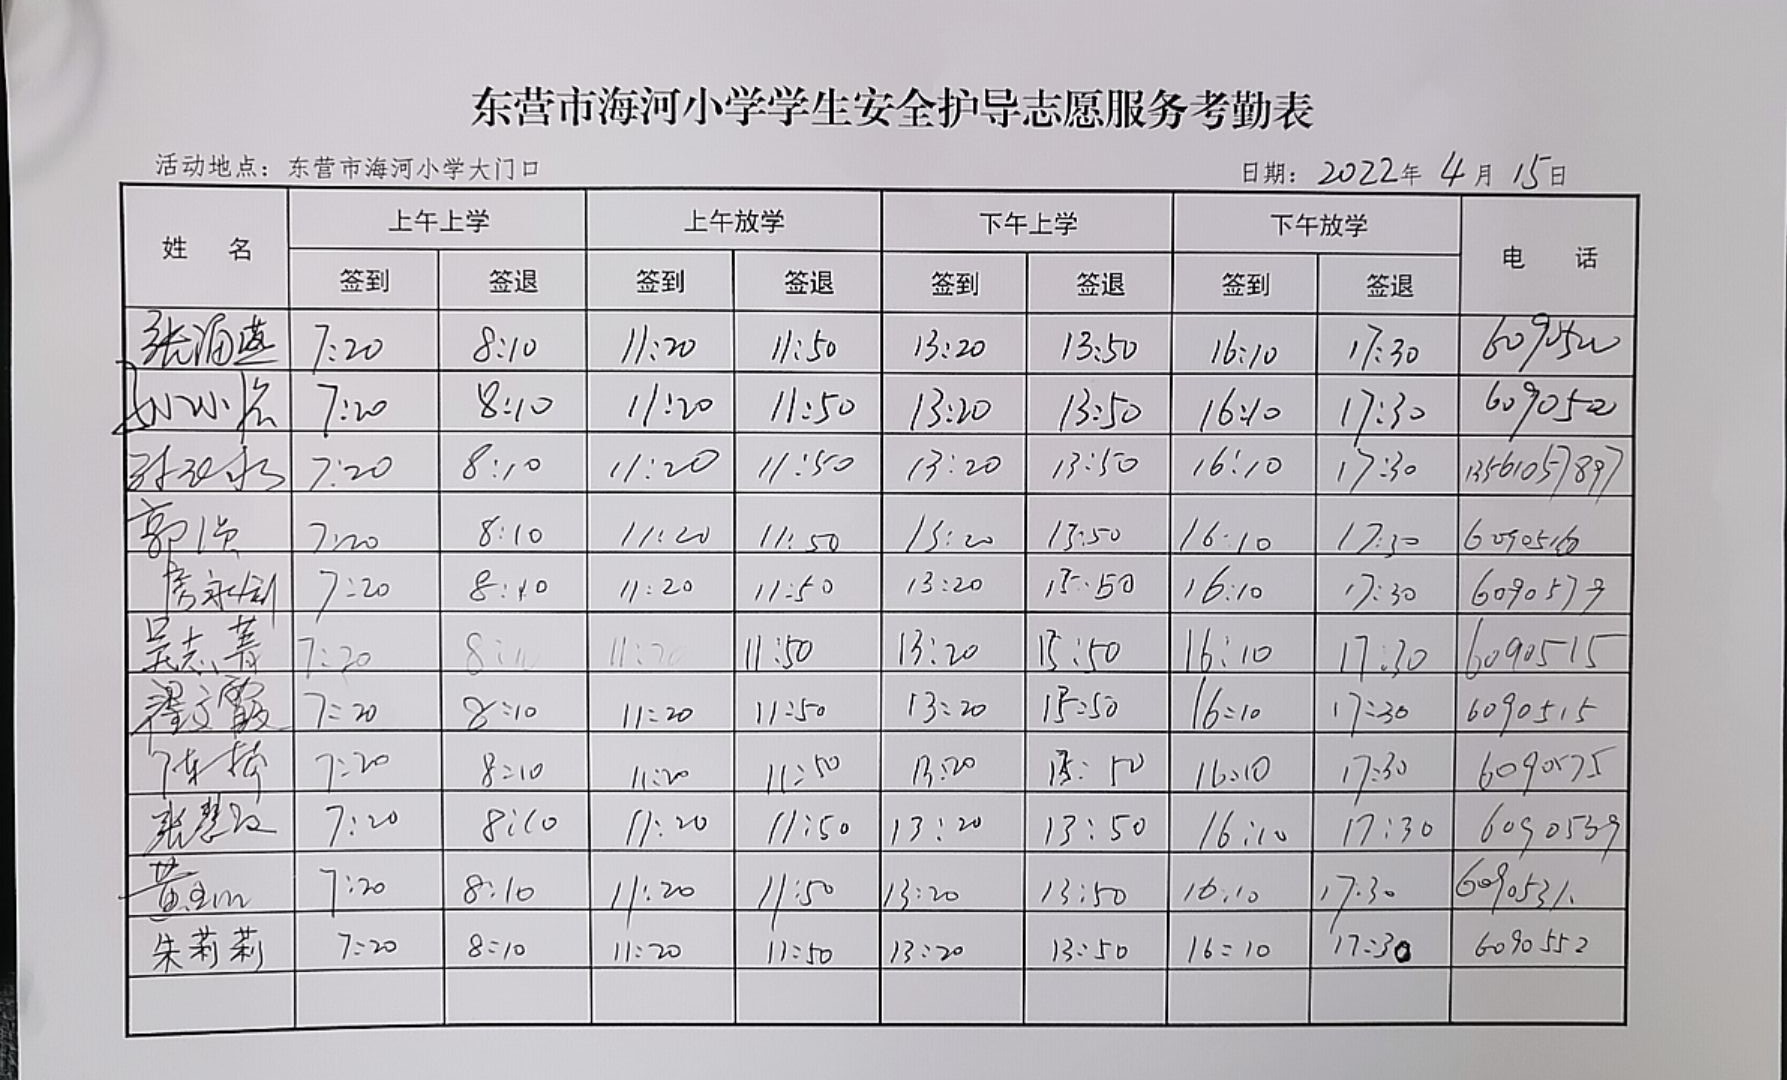 东营市海河小学学生安全护导志愿服务考勤表
活动地点：东营市海河小学大门口 日期：2022年4月15日
姓 名 上午上学 上午放学 下午上学 下午放学 电 话
签到 签退 签到 签退 签到 签退 签到 签退
7:20 8:10 11:20 11:50 13:20 13:50 16:10 17:30
7:20 8:10 11:20 11:50 13:20 13:50 16:10 17:30
7:20 8:10 11:20 11:50 13:20 13:50 16:10 17:30 13561057897
7:20 8:10 11:20 11:50 13:20 13:50 16:10 17:30
7:20 8:10 11:20 11:50 13:20 13:50 16:10 17:30 6090579
吴志菁 7:20 8:10 11:20 11:50 13:20 13:50 16:10 17:30 6090515
翟文霞 7:20 8:10 11:20 11:50 13:20 13:50 16:10 17:30 6090515
7:20 8:10 11:20 11:50 13:20 13:50 16:10 17:30 6090575
7:20 8:10 11:20 11:50 13:20 13:50 16:10 17:30 6090539
7:20 8:10 11:20 11:50 13:20 13:50 16:10 17:30 6090531
朱莉莉 7:20 8:10 11:20 11:50 13:20 13:50 16:10 17:30 6090552